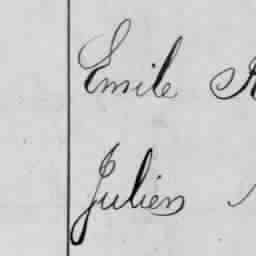 Emile
Julien